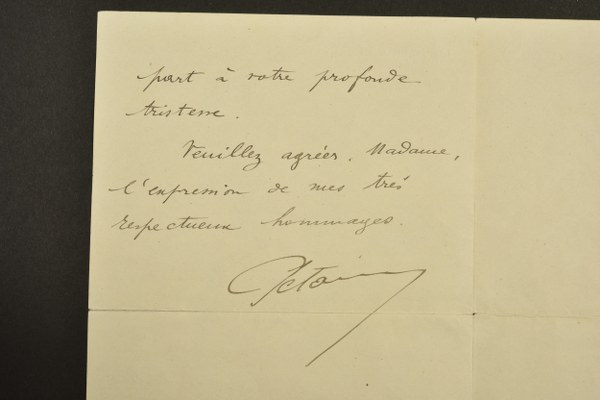 part à votre profonde
tristesse.
Veuillez agréer, Madame,
l'expression de mes très
respectueux hommages.
Pétain